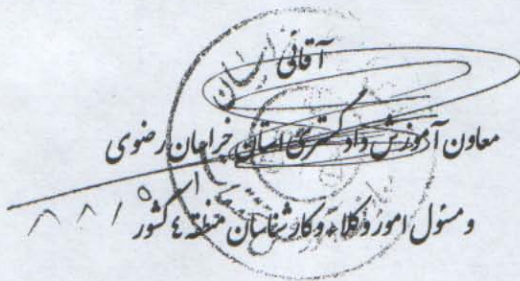 آقائی
معاون آموزش دادگستری استان خراسان رضوی
و مسئول امور وکلاء و کارشناسان منطقه ٤ کشور